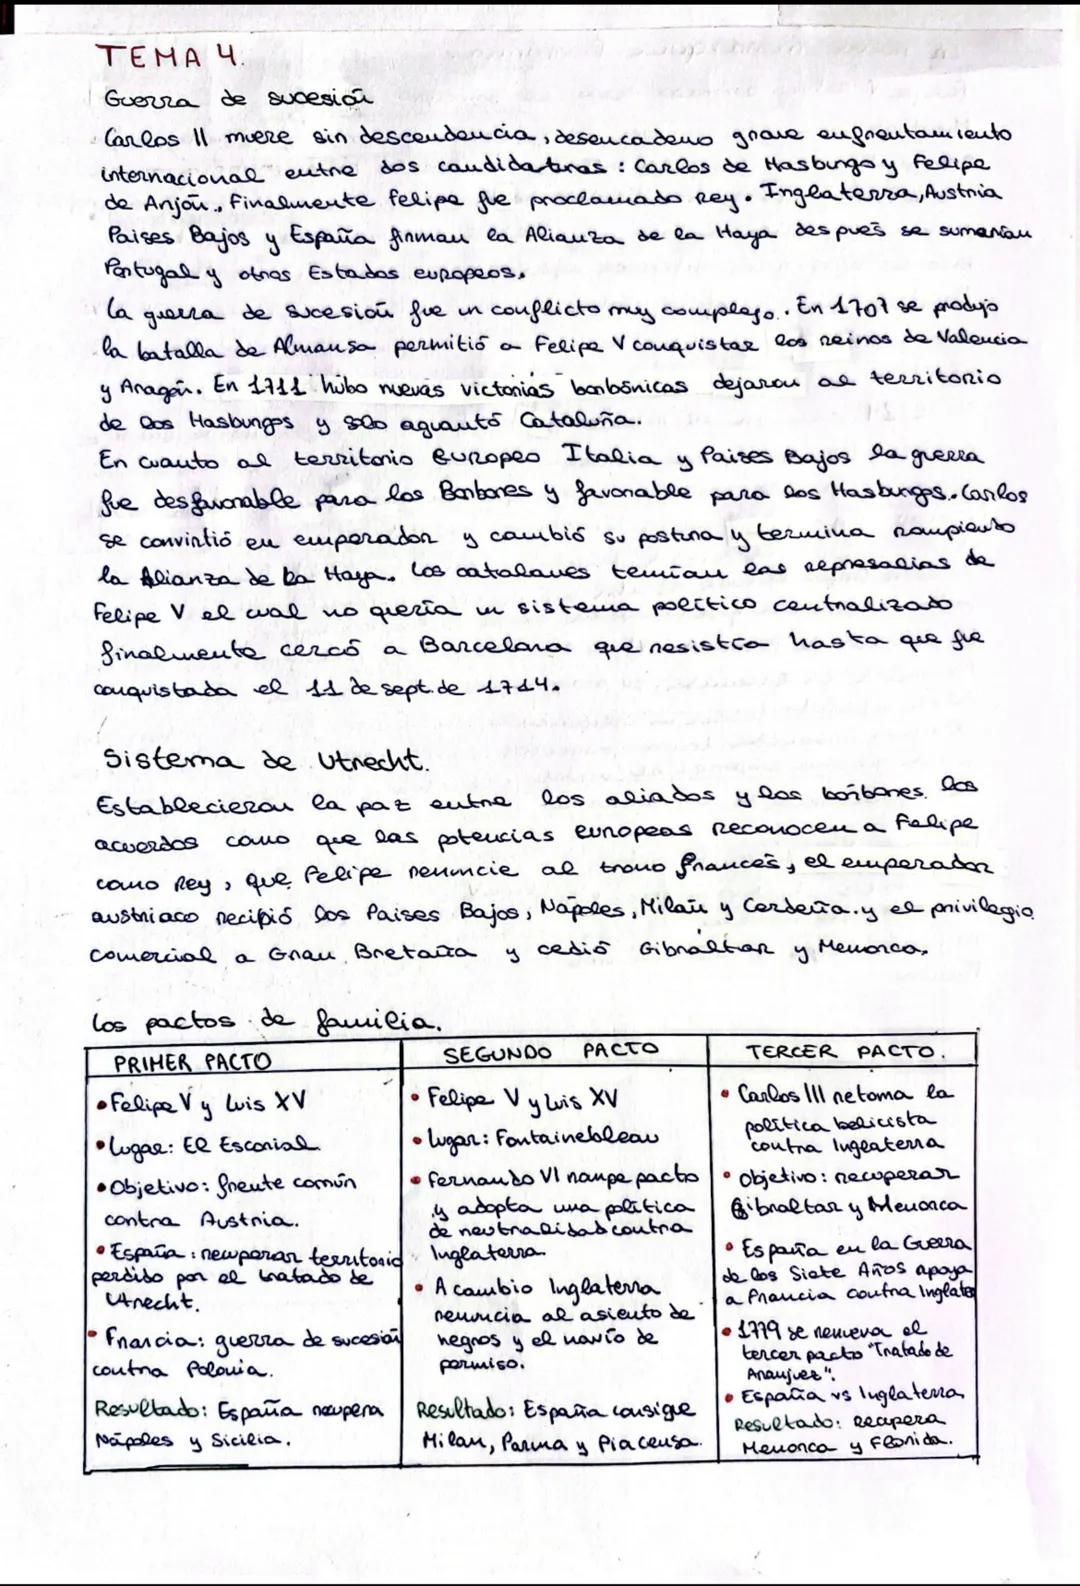 TEMA 4.
Guerra de sucesión
Carlos II muere sin descendencia, desencadeno grave enfrentamiento
internacional entre dos candidaturas: Carlos de Hasburgo y Felipe
de Anjou., Finalmente Felipe fue proclamado rey. Inglaterra, Austria
Paises Bajos y España firman la Alianza de la Haya después se sumarían
Portugal y otros Estados europeos.
La guerra de sucesión fue un conflicto muy complejo. En 1707 se produjo
la batalla de Almansa permitió a Felipe V conquistar los reinos de Valencia
y Aragón. En 1711 hubo nuevas victorias borbónicas dejaron al territorio
de los Hasburgos y solo aguantó Cataluña.
En cuanto al territorio Europeo Italia y Paises Bajos la guerra
fue desfavorable para los Borbones y favorable para los Hasburgos. Carlos
se convirtió en emperador y cambió su postura y termina rompiendo
la Alianza de La Haya. Los catalanes temían las represalias de
Felipe V el cual no quería un sistema político centralizado
finalmente cercó a Barcelona que resistía hasta que fue
conquistada el 11 de sept. de 1714.
Sistema de Utrecht.
Establecieron la paz entre los aliados y los borbones. los
acuerdos como que las potencias europeas reconocen a Felipe
como Rey, que Felipe renuncie al trono francés, el emperador
austriaco recibió los Paises Bajos, Nápoles, Milán y Cerdeña. y el privilegio
comercial a Gran Bretaña y cedió Gibraltar y Menorca.
Los pactos de familia.
PRIMER PACTO
• Felipe V y Luis XV
• Lugar: El Escorial
• Objetivo: frente común
contra Austria.
• España: recuperar territorio
perdido por el tratado de
Utrecht.
• Francia: guerra de sucesión
contra Polonia.
Resultado: España recupera
Nápoles y Sicilia.
SEGUNDO PACTO
• Felipe V y Luis XV
• Lugar: Fontainebleau
• Fernando VI rompe pacto
y adopta una política
de neutralidad contra
Inglaterra
• A cambio Inglaterra
renuncia al asiento de
negros y el navío de
permiso.
Resultado: España consigue
Milan, Parma y Piacensa.
TERCER PACTO.
• Carlos III retoma la
política belicista
contra Inglaterra
• Objetivo: recuperar
Gibraltar y Menorca
• España en la Guerra
de los Siete Años apoya
a Francia contra Inglater
• 1779 se renueva el
tercer pacto "Tratado de
Aranjuez".
• España vs Inglaterra
Resultado: recupera
Menorca y Florida.